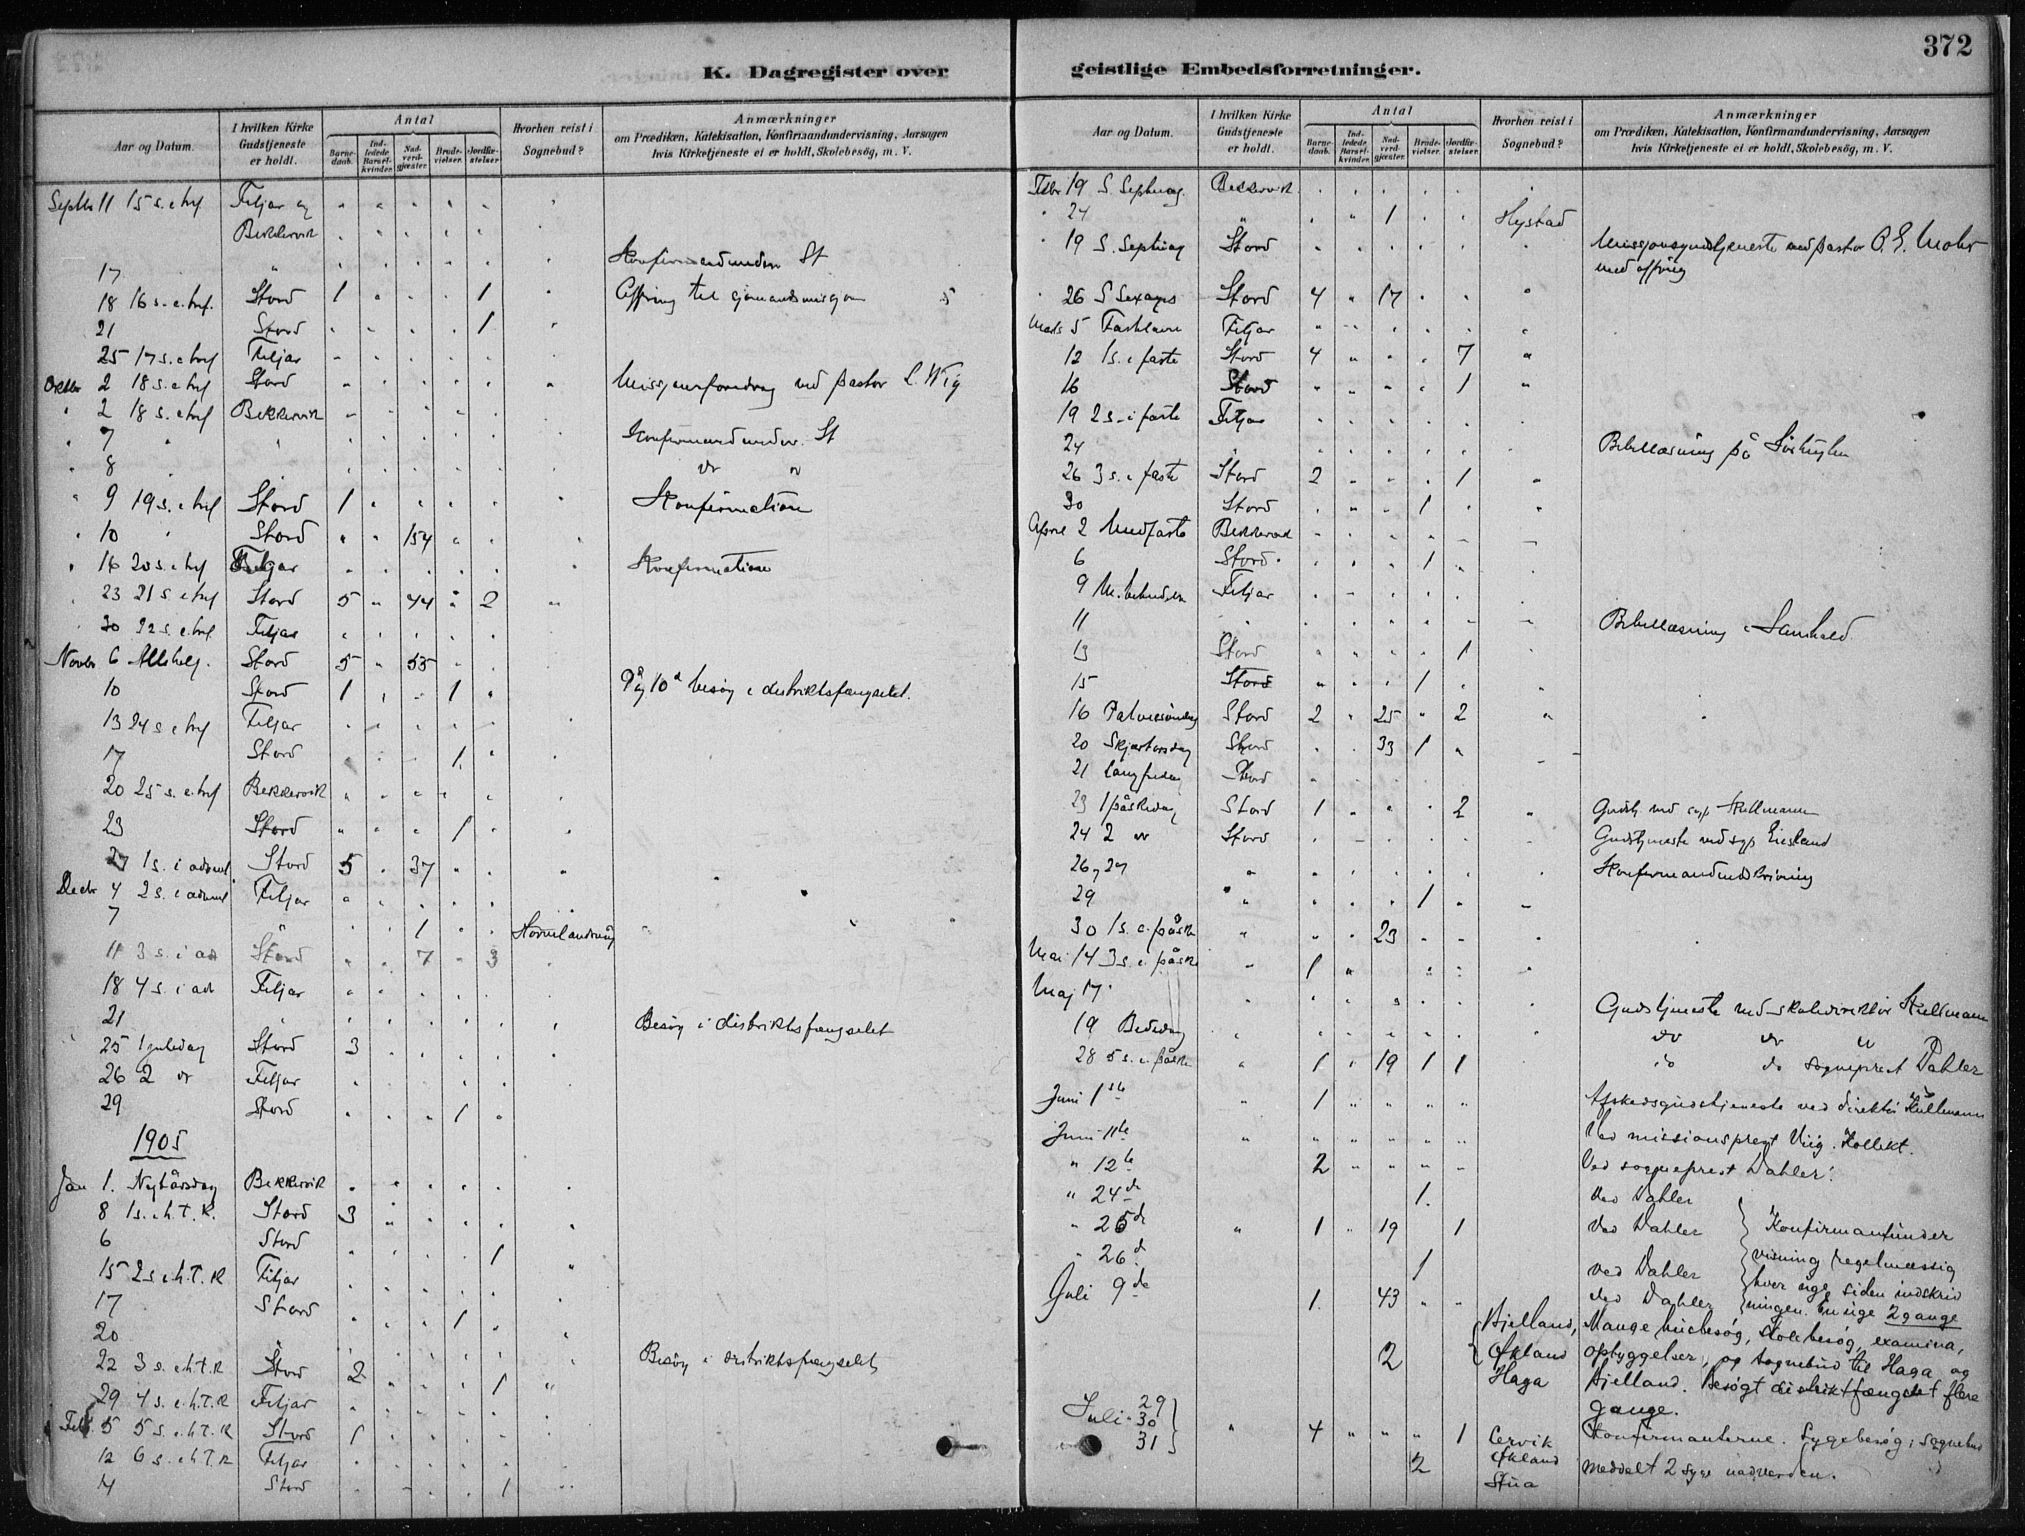 372
K. Dagregister over geistlige Embedsforretninger.
Aar og Datum. I hvilken Kirke Gudstjeneste er holdt. Antal Barnedaab. Indledede Barselkvinder. Nadverdgjæster. Brudevielser. Jordfæstelser Hvorhen reist i Sognebud? Anmærkninger om Prædiken, Katekisation, Konfirmandundervisning, Aarsagen hvis Kirketjeneste ei er holdt, Skolebesøg, m. V.
Septbr 11 15 s. e. tref Fitjar og
Bekkervik
17 Konfirmandunderv St
18 16 s. e. tref. Stord 1 1 Offring til 5
21 Stord 1
25 17 s. e tref Fitjar
Oktbr 2 18 s. e tref Stord Missjonsforedrag ved pastor L. Wig
" 2 18 s. e tref Bekkervik
" 7 Konfirmandunderv. St
" 8 do "
" 9 19 s. e tref Stord 1 Konfirmation
" 10 Stord 154
" 16 20 s. e tref Fitjar Konfirmation
23 21 s. e tref Stord 5 44 2
30 22 s. e. tref. Fitjar
Novbr 6 Allehelg. Stord 5 55
10 Stord 1 1 9 og 10 d besøg i distriktsfængselet.
13 24 s. e tref Fitjar
17 Stord 1
20 25 s. e. tref Bekkervik
23 Stord 1
27 1 s. i advent Stord 5 37
Decbr 4 2 s. i advent Fitjar
7 1
11 3 s. i ad Stord 7 3
18 4 s. i ad Fitjar
21 Besøg i distriktsfængselet
25 1 juledag Stord 3
26 2 do Fitjar
29 Stord 1
1905
Jan 1. Nytårsdag Bekkervik
8 1 s. e. h. T. K. Stord 3
6 Stord 1
15 2 s. e. h. T. K Fitjar
17 Stord 1
20 Besøg i distriktsfængselet
22 3 s. e. h. T. K Stord 2 1
29 4 s. e. h. T. K Fitjar
Feb 5 5 s. e. h. T. K Stord 1
12 6 s. e. h T. K Fitjar
Stord 1
Aar og Datum. I hvilken Kirke Gudstjeneste er holdt. Antal Barnedaab. Indledede Barselkvinder. Nadverdgjæster. Brudevielser. Jordfæstelser. Hvorhen reist i Sognebud? Anmærkninger om Prædiken, Katekisation, Konfirmandundervisning, Aarsagen hvis Kirketjeneste ei er holdt, Skolebesøg, m. V.
Febr 19 S. Septuag. Bekkervik
" 24 " 1 Hystad
" 19 S. Septuag Stord Missjonsgudstjeneste ved pastor O. E. Mohr
med offring
" 26 S Sexages Stord 4 17
Mars 5 Fastelavn Fitjar
12 1 s. i faste Stord 4 7
16 Stord 1
19 2 s. i faste Fitjar
24 Bibellæsning på
26 3 s. i faste Stord 2 1
30 Stord 1
April 2 Midfaste Bekkervik
6 Stord 1
9 M. bebudelse Fitjar
11 Bibellæsning i
13 Stord 1
15 Stord 1
16 Palmesøndag Stord 2 25 2
20 Skjærtorsdag Stord 33 1
21 Langfredag Stord
23 1 påskedag Stord 1 2 Gudstj. ved Hullmann
24 2 do Stord Gudstjeneste ved
26, 27 Konfirmandindskrivning
29 " 1
30 1 s. e. påske " 23
Mai 14 3 s. e. påske 1
Maj 17. Gudstjeneste ved skoledirektør Hullmann
19 Bededag do do "
28 5 s. e. påske 1 19 1 1 do do sogneprest Dahler
Juni 1ste 1 Afskedsgudstjeneste ved direktør Hullmann
Juni 11te Ved missionsprest Viig. Kollekt.
" 12te 2 Ved sogneprest Dahler.
" 24de 1. Ved Dahler
" 25de " 1 19 1 Ved Dahler Konfirmantunder
" 26d 1 ved Dahler visning regelmæssig
Juli 9de 1. 43 Ved Dahler hver uge siden indskriv
ningen. En uge 2 gange
Bjelland, Mange husbesøg, skolebesøg, examina,
2 Økland opbyggelser, og sognebud til Haga og
Haga Bjelland. Besøgt distriktfængslet flere
gange.
Juli 29
30
31 " 4 1 Lervik Konfirmanterne. Sygebesøg; sognebud
2 Økland meddelt 2 syge nadverden.
Stua